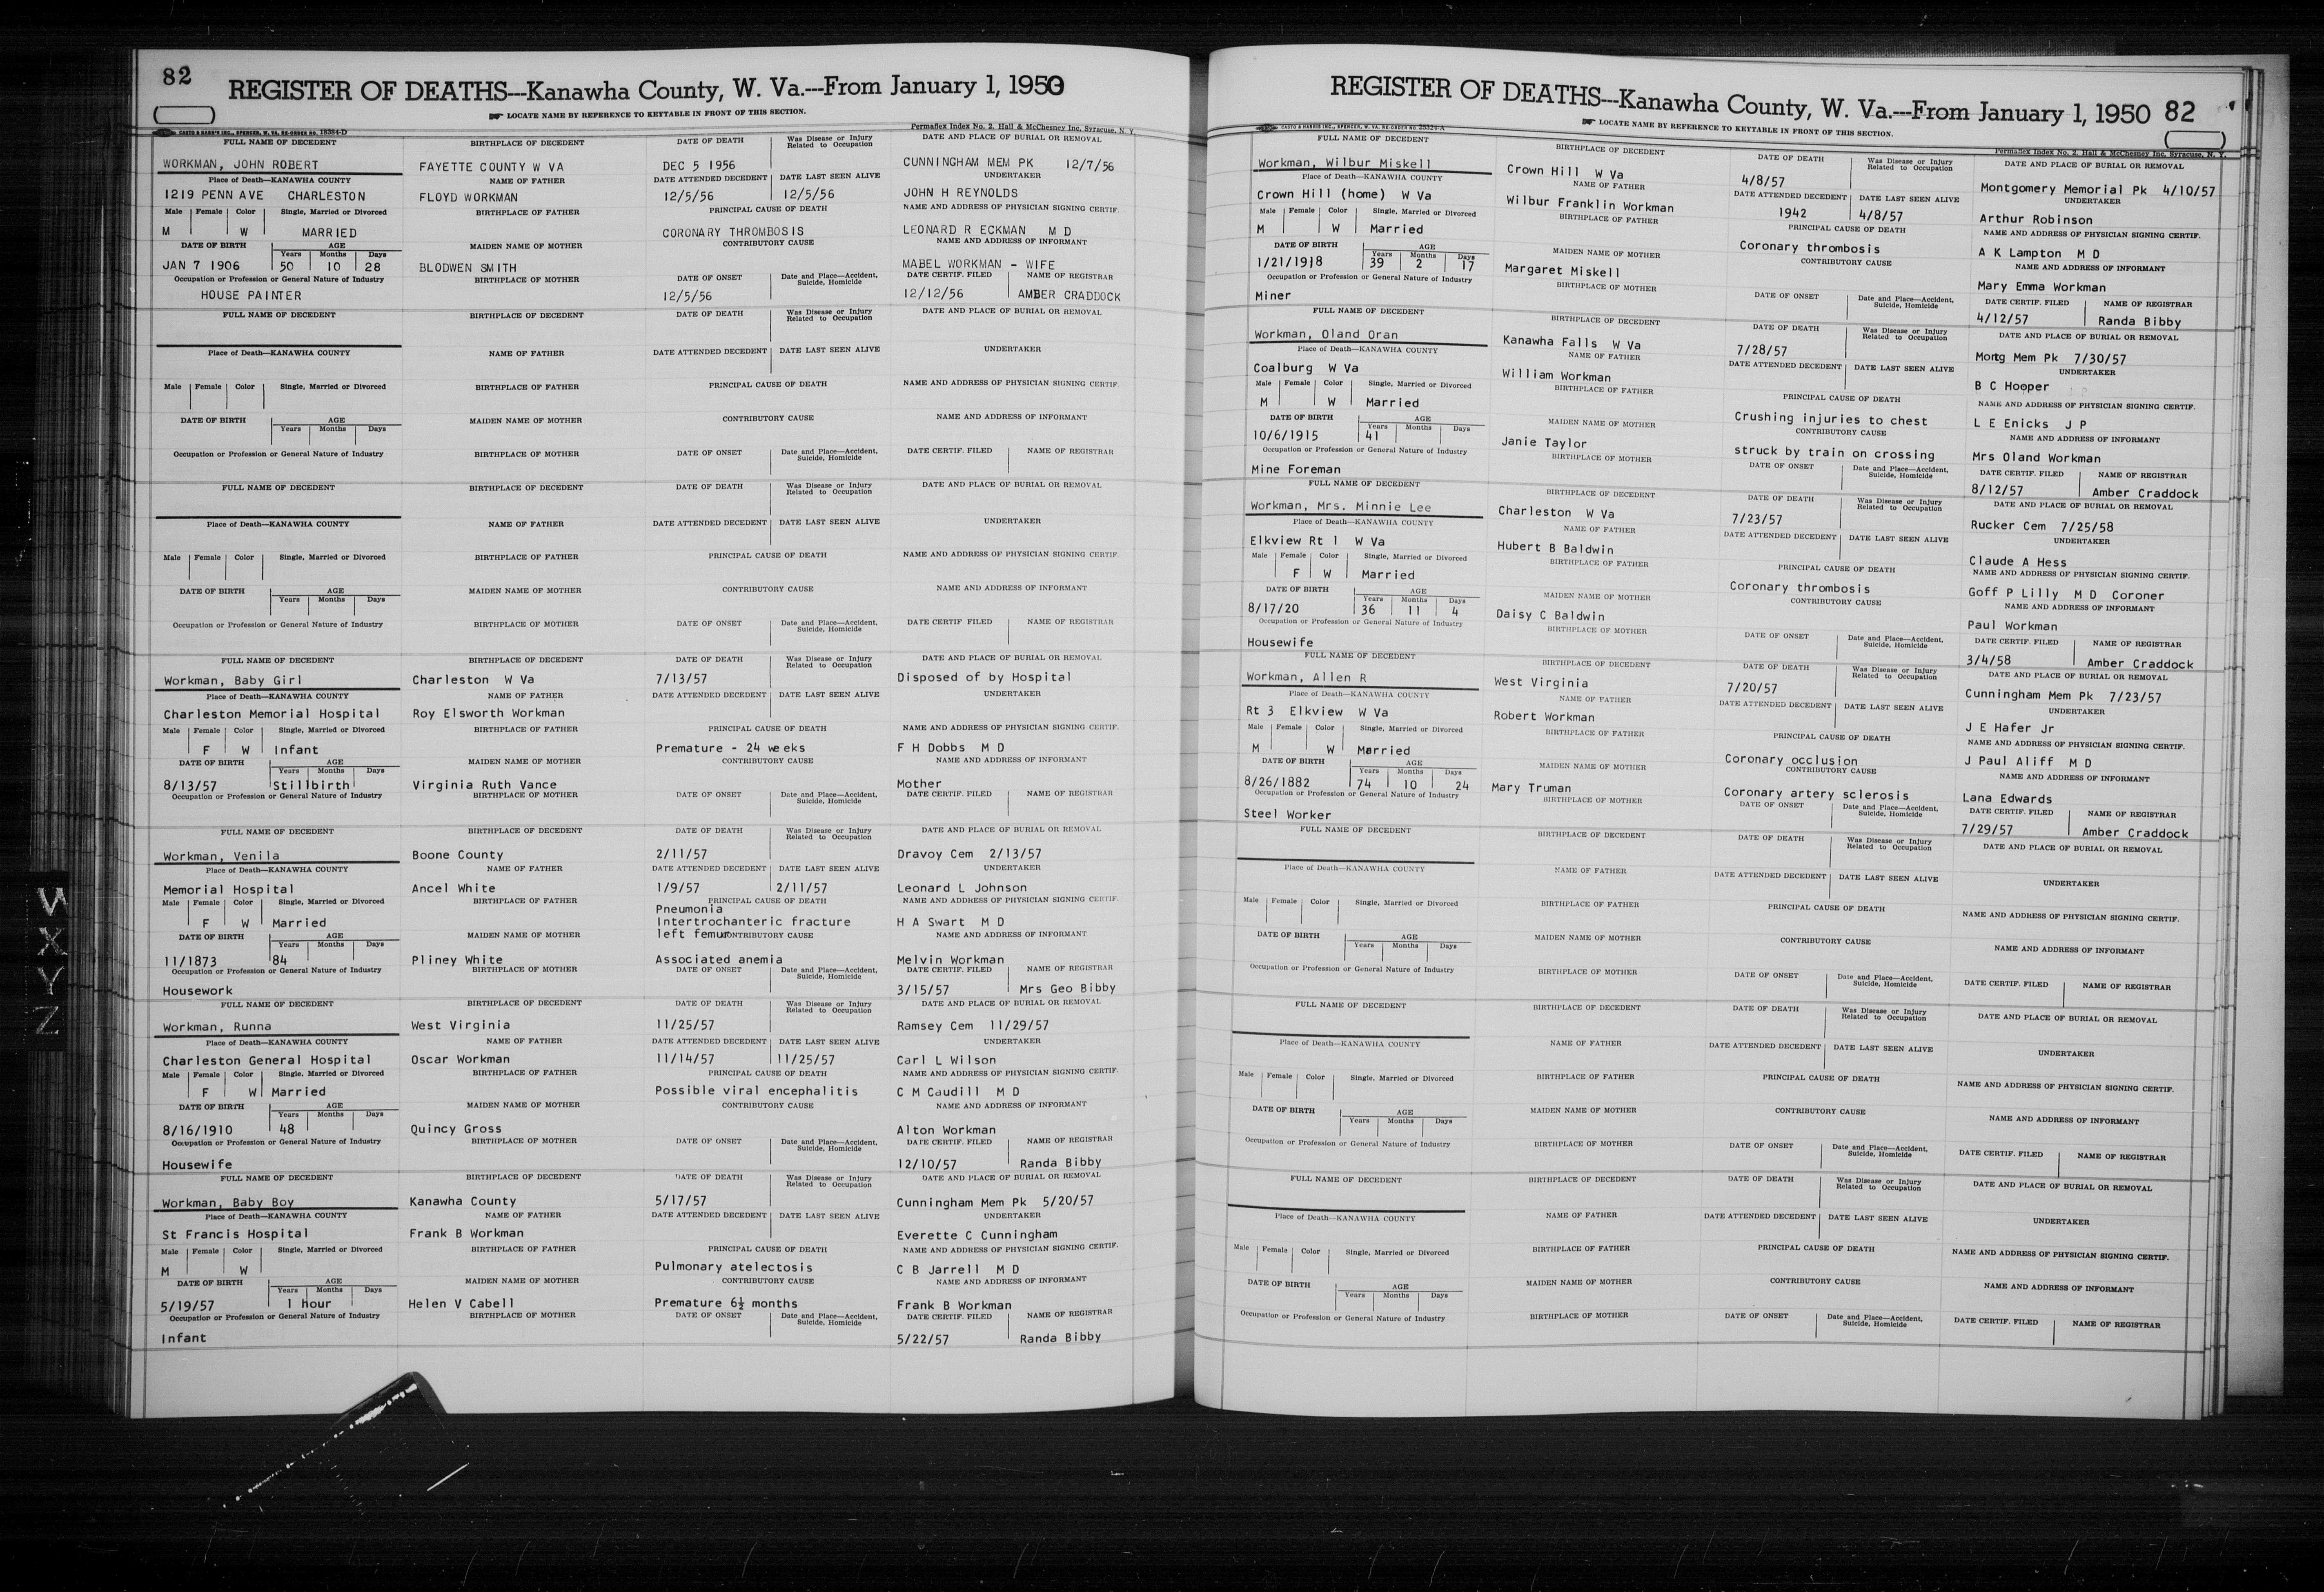 82
REGISTER OF DEATHS---Kanawha County, W. Va.---From January 1, 1950
LOCATE NAME BY REFERENCE TO KEYTABLE IN FRONT OF THIS SECTION.
CASTO & HARRIS INC., SPENCER, W. VA. RE-ORDER NO. 18384-D
Permaflex Index No. 2, Hall & McChesney Inc, Syracuse, N. Y.
FULL NAME OF DECEDENT BIRTHPLACE OF DECEDENT DATE OF DEATH Was Disease or Injury Related to Occupation DATE AND PLACE OF BURIAL OR REMOVAL
WORKMAN, JOHN ROBERT FAYETTE COUNTY W VA DEC 5 1956 CUNNINGHAM MEM PK 12/7/56
Place of Death—KANAWHA COUNTY NAME OF FATHER DATE ATTENDED DECEDENT DATE LAST SEEN ALIVE UNDERTAKER
1219 PENN AVE CHARLESTON FLOYD WORKMAN 12/5/56 12/5/56 JOHN H REYNOLDS
Male Female Color Single, Married or Divorced BIRTHPLACE OF FATHER PRINCIPAL CAUSE OF DEATH NAME AND ADDRESS OF PHYSICIAN SIGNING CERTIF.
M W MARRIED CORONARY THROMBOSIS LEONARD R ECKMAN M D
DATE OF BIRTH AGE Years Months Days MAIDEN NAME OF MOTHER CONTRIBUTORY CAUSE NAME AND ADDRESS OF INFORMANT
JAN 7 1906 50 10 28 BLODWEN SMITH MABEL WORKMAN - WIFE
Occupation or Profession or General Nature of Industry BIRTHPLACE OF MOTHER DATE OF ONSET Date and Place—Accident, Suicide, Homicide DATE CERTIF. FILED NAME OF REGISTRAR
HOUSE PAINTER 12/5/56 12/12/56 AMBER CRADDOCK
FULL NAME OF DECEDENT BIRTHPLACE OF DECEDENT DATE OF DEATH Was Disease or Injury Related to Occupation DATE AND PLACE OF BURIAL OR REMOVAL
Place of Death—KANAWHA COUNTY NAME OF FATHER DATE ATTENDED DECEDENT DATE LAST SEEN ALIVE UNDERTAKER
Male Female Color Single, Married or Divorced BIRTHPLACE OF FATHER PRINCIPAL CAUSE OF DEATH NAME AND ADDRESS OF PHYSICIAN SIGNING CERTIF.
DATE OF BIRTH AGE Years Months Days MAIDEN NAME OF MOTHER CONTRIBUTORY CAUSE NAME AND ADDRESS OF INFORMANT
Occupation or Profession or General Nature of Industry BIRTHPLACE OF MOTHER DATE OF ONSET Date and Place—Accident, Suicide, Homicide DATE CERTIF. FILED NAME OF REGISTRAR
FULL NAME OF DECEDENT BIRTHPLACE OF DECEDENT DATE OF DEATH Was Disease or Injury Related to Occupation DATE AND PLACE OF BURIAL OR REMOVAL
Place of Death—KANAWHA COUNTY NAME OF FATHER DATE ATTENDED DECEDENT DATE LAST SEEN ALIVE UNDERTAKER
Male Female Color Single, Married or Divorced BIRTHPLACE OF FATHER PRINCIPAL CAUSE OF DEATH NAME AND ADDRESS OF PHYSICIAN SIGNING CERTIF.
DATE OF BIRTH AGE Years Months Days MAIDEN NAME OF MOTHER CONTRIBUTORY CAUSE NAME AND ADDRESS OF INFORMANT
Occupation or Profession or General Nature of Industry BIRTHPLACE OF MOTHER DATE OF ONSET Date and Place—Accident, Suicide, Homicide DATE CERTIF. FILED NAME OF REGISTRAR
FULL NAME OF DECEDENT BIRTHPLACE OF DECEDENT DATE OF DEATH Was Disease or Injury Related to Occupation DATE AND PLACE OF BURIAL OR REMOVAL
Workman, Baby Girl Charleston W Va 7/13/57 Disposed of by Hospital
Place of Death—KANAWHA COUNTY NAME OF FATHER DATE ATTENDED DECEDENT DATE LAST SEEN ALIVE UNDERTAKER
Charleston Memorial Hospital Roy Elsworth Workman
Male Female Color Single, Married or Divorced BIRTHPLACE OF FATHER PRINCIPAL CAUSE OF DEATH NAME AND ADDRESS OF PHYSICIAN SIGNING CERTIF.
F W Infant Premature - 24 weeks F H Dobbs M D
DATE OF BIRTH AGE Years Months Days MAIDEN NAME OF MOTHER CONTRIBUTORY CAUSE NAME AND ADDRESS OF INFORMANT
8/13/57 Stillbirth Virginia Ruth Vance Mother
Occupation or Profession or General Nature of Industry BIRTHPLACE OF MOTHER DATE OF ONSET Date and Place—Accident, Suicide, Homicide DATE CERTIF. FILED NAME OF REGISTRAR
FULL NAME OF DECEDENT BIRTHPLACE OF DECEDENT DATE OF DEATH Was Disease or Injury Related to Occupation DATE AND PLACE OF BURIAL OR REMOVAL
Workman, Venila Boone County 2/11/57 Dravoy Cem 2/13/57
Place of Death—KANAWHA COUNTY NAME OF FATHER DATE ATTENDED DECEDENT DATE LAST SEEN ALIVE UNDERTAKER
Memorial Hospital Ancel White 1/9/57 2/11/57 Leonard L Johnson
Male Female Color Single, Married or Divorced BIRTHPLACE OF FATHER PRINCIPAL CAUSE OF DEATH NAME AND ADDRESS OF PHYSICIAN SIGNING CERTIF.
Pneumonia
F W Married Intertrochanteric fracture H A Swart M D
left femur
DATE OF BIRTH AGE Years Months Days MAIDEN NAME OF MOTHER CONTRIBUTORY CAUSE NAME AND ADDRESS OF INFORMANT
11/1873 84 Pliney White Associated anemia Melvin Workman
Occupation or Profession or General Nature of Industry BIRTHPLACE OF MOTHER DATE OF ONSET Date and Place—Accident, Suicide, Homicide DATE CERTIF. FILED NAME OF REGISTRAR
Housework 3/15/57 Mrs Geo Bibby
FULL NAME OF DECEDENT BIRTHPLACE OF DECEDENT DATE OF DEATH Was Disease or Injury Related to Occupation DATE AND PLACE OF BURIAL OR REMOVAL
Workman, Runna West Virginia 11/25/57 Ramsey Cem 11/29/57
Place of Death—KANAWHA COUNTY NAME OF FATHER DATE ATTENDED DECEDENT DATE LAST SEEN ALIVE UNDERTAKER
Charleston General Hospital Oscar Workman 11/14/57 11/25/57 Carl L Wilson
Male Female Color Single, Married or Divorced BIRTHPLACE OF FATHER PRINCIPAL CAUSE OF DEATH NAME AND ADDRESS OF PHYSICIAN SIGNING CERTIF.
F W Married Possible viral encephalitis C M Caudill M D
DATE OF BIRTH AGE Years Months Days MAIDEN NAME OF MOTHER CONTRIBUTORY CAUSE NAME AND ADDRESS OF INFORMANT
8/16/1910 48 Quincy Gross Alton Workman
Occupation or Profession or General Nature of Industry BIRTHPLACE OF MOTHER DATE OF ONSET Date and Place—Accident, Suicide, Homicide DATE CERTIF. FILED NAME OF REGISTRAR
Housewife 12/10/57 Randa Bibby
FULL NAME OF DECEDENT BIRTHPLACE OF DECEDENT DATE OF DEATH Was Disease or Injury Related to Occupation DATE AND PLACE OF BURIAL OR REMOVAL
Workman, Baby Boy Kanawha County 5/17/57 Cunningham Mem Pk 5/20/57
Place of Death—KANAWHA COUNTY NAME OF FATHER DATE ATTENDED DECEDENT DATE LAST SEEN ALIVE UNDERTAKER
St Francis Hospital Frank B Workman Everette C Cunningham
Male Female Color Single, Married or Divorced BIRTHPLACE OF FATHER PRINCIPAL CAUSE OF DEATH NAME AND ADDRESS OF PHYSICIAN SIGNING CERTIF.
M W Pulmonary atelectosis C B Jarrell M D
DATE OF BIRTH AGE Years Months Days MAIDEN NAME OF MOTHER CONTRIBUTORY CAUSE NAME AND ADDRESS OF INFORMANT
5/19/57 1 hour Helen V Cabell Premature 6½ months Frank B Workman
Occupation or Profession or General Nature of Industry BIRTHPLACE OF MOTHER DATE OF ONSET Date and Place—Accident, Suicide, Homicide DATE CERTIF. FILED NAME OF REGISTRAR
Infant 5/22/57 Randa Bibby
W
X
Y
Z
REGISTER OF DEATHS---Kanawha County, W. Va.---From January 1, 1950 82
LOCATE NAME BY REFERENCE TO KEYTABLE IN FRONT OF THIS SECTION.
CASTO & HARRIS INC., SPENCER, W. VA. RE-ORDER NO. 25324-A
Permaflex Index No. 2, Hall & McChesney Inc, Syracuse, N. Y.
FULL NAME OF DECEDENT BIRTHPLACE OF DECEDENT DATE OF DEATH Was Disease or Injury Related to Occupation DATE AND PLACE OF BURIAL OR REMOVAL
Workman, Wilbur Miskell Crown Hill W Va 4/8/57 Montgomery Memorial Pk 4/10/57
Place of Death—KANAWHA COUNTY NAME OF FATHER DATE ATTENDED DECEDENT DATE LAST SEEN ALIVE UNDERTAKER
Crown Hill (home) W Va Wilbur Franklin Workman 1942 4/8/57 Arthur Robinson
Male Female Color Single, Married or Divorced BIRTHPLACE OF FATHER PRINCIPAL CAUSE OF DEATH NAME AND ADDRESS OF PHYSICIAN SIGNING CERTIF.
M W Married Coronary thrombosis A K Lampton M D
DATE OF BIRTH AGE Years Months Days MAIDEN NAME OF MOTHER CONTRIBUTORY CAUSE NAME AND ADDRESS OF INFORMANT
1/21/1918 39 2 17 Margaret Miskell Mary Emma Workman
Occupation or Profession or General Nature of Industry BIRTHPLACE OF MOTHER DATE OF ONSET Date and Place—Accident, Suicide, Homicide DATE CERTIF. FILED NAME OF REGISTRAR
Miner 4/12/57 Randa Bibby
FULL NAME OF DECEDENT BIRTHPLACE OF DECEDENT DATE OF DEATH Was Disease or Injury Related to Occupation DATE AND PLACE OF BURIAL OR REMOVAL
Workman, Oland Oran Kanawha Falls W Va 7/28/57 Montg Mem Pk 7/30/57
Place of Death—KANAWHA COUNTY NAME OF FATHER DATE ATTENDED DECEDENT DATE LAST SEEN ALIVE UNDERTAKER
Coalburg W Va William Workman B C Hooper
Male Female Color Single, Married or Divorced BIRTHPLACE OF FATHER PRINCIPAL CAUSE OF DEATH NAME AND ADDRESS OF PHYSICIAN SIGNING CERTIF.
M W Married Crushing injuries to chest L E Enicks J P
DATE OF BIRTH AGE Years Months Days MAIDEN NAME OF MOTHER CONTRIBUTORY CAUSE NAME AND ADDRESS OF INFORMANT
10/6/1915 41 Janie Taylor struck by train on crossing Mrs Oland Workman
Occupation or Profession or General Nature of Industry BIRTHPLACE OF MOTHER DATE OF ONSET Date and Place—Accident, Suicide, Homicide DATE CERTIF. FILED NAME OF REGISTRAR
Mine Foreman 8/12/57 Amber Craddock
FULL NAME OF DECEDENT BIRTHPLACE OF DECEDENT DATE OF DEATH Was Disease or Injury Related to Occupation DATE AND PLACE OF BURIAL OR REMOVAL
Workman, Mrs. Minnie Lee Charleston W Va 7/23/57 Rucker Cem 7/25/58
Place of Death—KANAWHA COUNTY NAME OF FATHER DATE ATTENDED DECEDENT DATE LAST SEEN ALIVE UNDERTAKER
Elkview Rt 1 W Va Hubert B Baldwin Claude A Hess
Male Female Color Single, Married or Divorced BIRTHPLACE OF FATHER PRINCIPAL CAUSE OF DEATH NAME AND ADDRESS OF PHYSICIAN SIGNING CERTIF.
F W Married Coronary thrombosis Goff P Lilly M D Coroner
DATE OF BIRTH AGE Years Months Days MAIDEN NAME OF MOTHER CONTRIBUTORY CAUSE NAME AND ADDRESS OF INFORMANT
8/17/20 36 11 4 Daisy C Baldwin Paul Workman
Occupation or Profession or General Nature of Industry BIRTHPLACE OF MOTHER DATE OF ONSET Date and Place—Accident, Suicide, Homicide DATE CERTIF. FILED NAME OF REGISTRAR
Housewife 3/4/58 Amber Craddock
FULL NAME OF DECEDENT BIRTHPLACE OF DECEDENT DATE OF DEATH Was Disease or Injury Related to Occupation DATE AND PLACE OF BURIAL OR REMOVAL
Workman, Allen R West Virginia 7/20/57 Cunningham Mem Pk 7/23/57
Place of Death—KANAWHA COUNTY NAME OF FATHER DATE ATTENDED DECEDENT DATE LAST SEEN ALIVE UNDERTAKER
Rt 3 Elkview W Va Robert Workman J E Hafer Jr
Male Female Color Single, Married or Divorced BIRTHPLACE OF FATHER PRINCIPAL CAUSE OF DEATH NAME AND ADDRESS OF PHYSICIAN SIGNING CERTIF.
M W Married Coronary occlusion J Paul Aliff M D
DATE OF BIRTH AGE Years Months Days MAIDEN NAME OF MOTHER CONTRIBUTORY CAUSE NAME AND ADDRESS OF INFORMANT
8/26/1882 74 10 24 Mary Truman Coronary artery sclerosis Lana Edwards
Occupation or Profession or General Nature of Industry BIRTHPLACE OF MOTHER DATE OF ONSET Date and Place—Accident, Suicide, Homicide DATE CERTIF. FILED NAME OF REGISTRAR
Steel Worker 7/29/57 Amber Craddock
FULL NAME OF DECEDENT BIRTHPLACE OF DECEDENT DATE OF DEATH Was Disease or Injury Related to Occupation DATE AND PLACE OF BURIAL OR REMOVAL
Place of Death—KANAWHA COUNTY NAME OF FATHER DATE ATTENDED DECEDENT DATE LAST SEEN ALIVE UNDERTAKER
Male Female Color Single, Married or Divorced BIRTHPLACE OF FATHER PRINCIPAL CAUSE OF DEATH NAME AND ADDRESS OF PHYSICIAN SIGNING CERTIF.
DATE OF BIRTH AGE Years Months Days MAIDEN NAME OF MOTHER CONTRIBUTORY CAUSE NAME AND ADDRESS OF INFORMANT
Occupation or Profession or General Nature of Industry BIRTHPLACE OF MOTHER DATE OF ONSET Date and Place—Accident, Suicide, Homicide DATE CERTIF. FILED NAME OF REGISTRAR
FULL NAME OF DECEDENT BIRTHPLACE OF DECEDENT DATE OF DEATH Was Disease or Injury Related to Occupation DATE AND PLACE OF BURIAL OR REMOVAL
Place of Death—KANAWHA COUNTY NAME OF FATHER DATE ATTENDED DECEDENT DATE LAST SEEN ALIVE UNDERTAKER
Male Female Color Single, Married or Divorced BIRTHPLACE OF FATHER PRINCIPAL CAUSE OF DEATH NAME AND ADDRESS OF PHYSICIAN SIGNING CERTIF.
DATE OF BIRTH AGE Years Months Days MAIDEN NAME OF MOTHER CONTRIBUTORY CAUSE NAME AND ADDRESS OF INFORMANT
Occupation or Profession or General Nature of Industry BIRTHPLACE OF MOTHER DATE OF ONSET Date and Place—Accident, Suicide, Homicide DATE CERTIF. FILED NAME OF REGISTRAR
FULL NAME OF DECEDENT BIRTHPLACE OF DECEDENT DATE OF DEATH Was Disease or Injury Related to Occupation DATE AND PLACE OF BURIAL OR REMOVAL
Place of Death—KANAWHA COUNTY NAME OF FATHER DATE ATTENDED DECEDENT DATE LAST SEEN ALIVE UNDERTAKER
Male Female Color Single, Married or Divorced BIRTHPLACE OF FATHER PRINCIPAL CAUSE OF DEATH NAME AND ADDRESS OF PHYSICIAN SIGNING CERTIF.
DATE OF BIRTH AGE Years Months Days MAIDEN NAME OF MOTHER CONTRIBUTORY CAUSE NAME AND ADDRESS OF INFORMANT
Occupation or Profession or General Nature of Industry BIRTHPLACE OF MOTHER DATE OF ONSET Date and Place—Accident, Suicide, Homicide DATE CERTIF. FILED NAME OF REGISTRAR